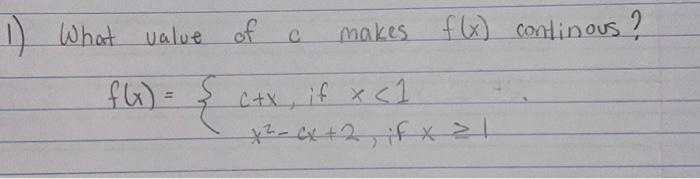 1) What value of c makes f(x) continous?
f(x) = { c+x, if x < 1
x² - cx + 2, if x ≥ 1